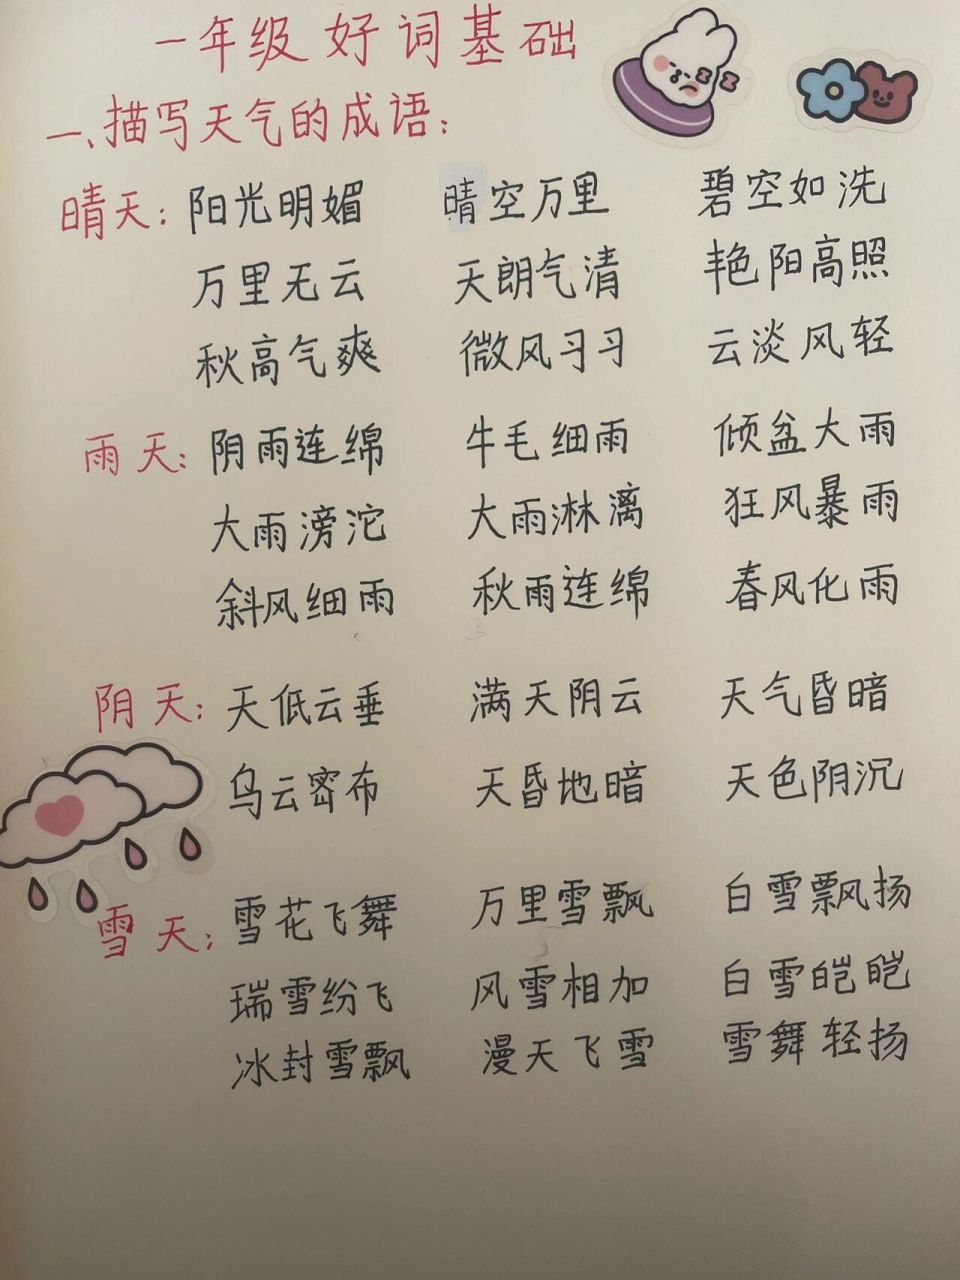 一年级好词基础
一、描写天气的成语：
晴天：阳光明媚 晴空万里 碧空如洗
万里无云 天朗气清 艳阳高照
秋高气爽 微风习习 云淡风轻
雨天：阴雨连绵 牛毛细雨 倾盆大雨
大雨滂沱 大雨淋漓 狂风暴雨
斜风细雨 秋雨连绵 春风化雨
阴天：天低云垂 满天阴云 天气昏暗
乌云密布 天昏地暗 天色阴沉
雪天：雪花飞舞 万里雪飘 白雪飘扬
瑞雪纷飞 风雪相加 白雪皑皑
冰封雪飘 漫天飞雪 雪舞轻扬